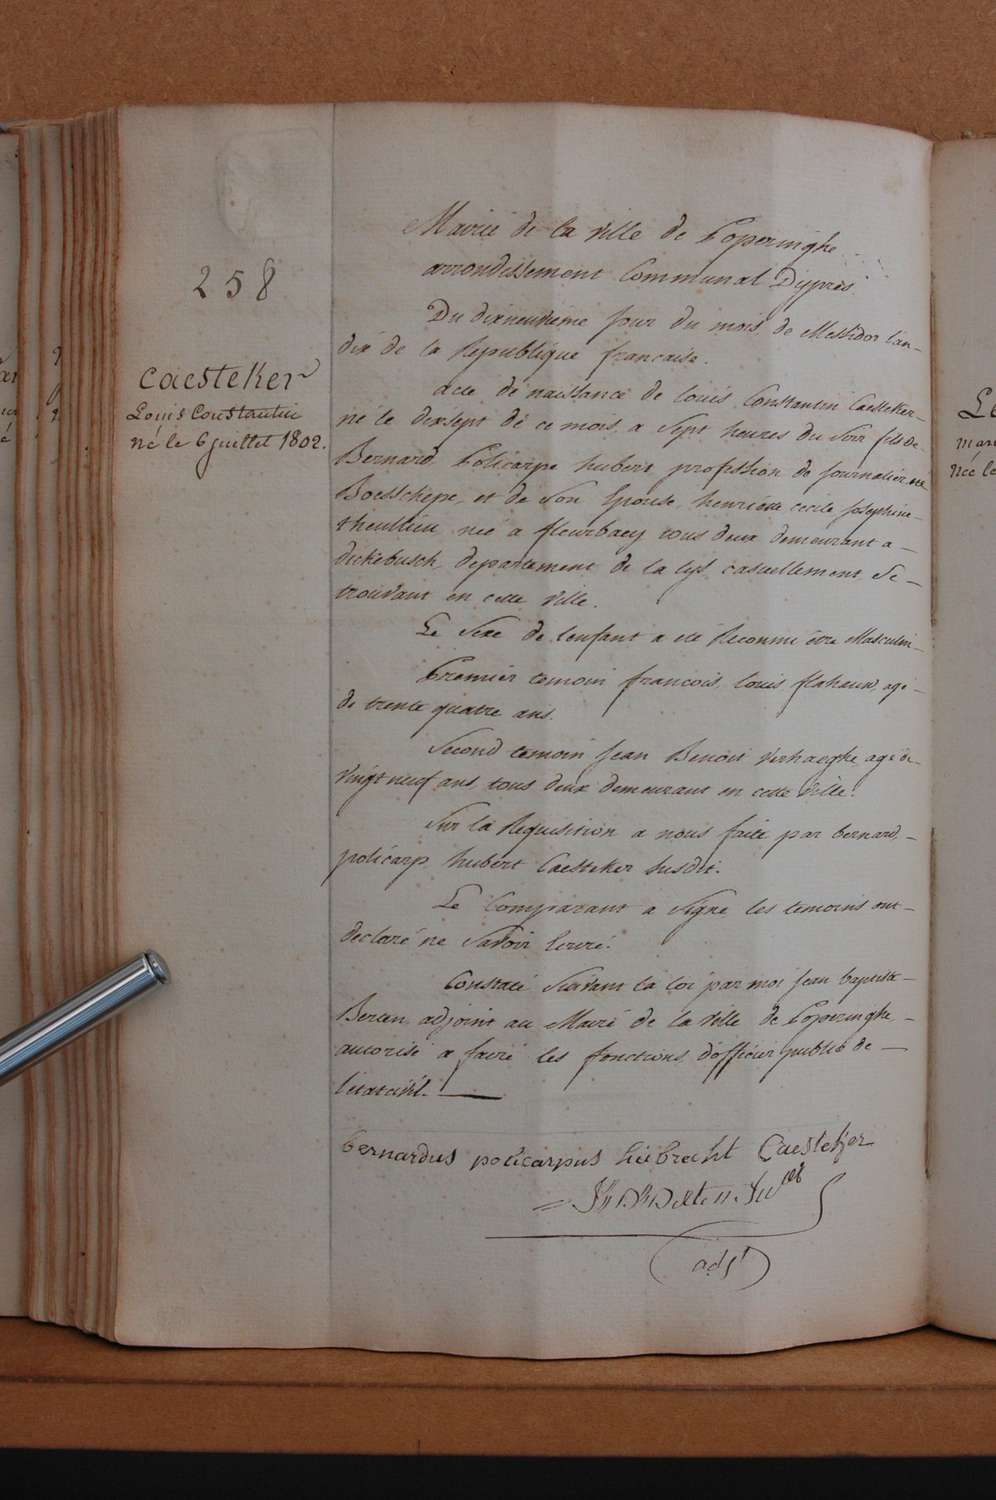 258
Caesteker
Louis Constantin
né le 6 juillet 1802.
Mairie de la ville de Poperinghe
arrondissement Communal Dÿpres
Du dixneuvieme jour du mois de Messidor l'an
dix de la Republique francaise.
acte de naissance de Louis Constantin Caesteker
né le dixsept de ce mois a Sept heures du Soir fils de
Bernard Policarpe hubert profession de Journalier né a
Boesschepe, et de Son Epouse, henriette cecile Josephine
theullieu née a fleurbaey tous deux demeurant a
dickebusch, departement de la lys casuellement Se
trouvant en cette ville.
Le Sexe de l'enfant a eté Reconnu être Masculin
Premier temoin francois louis flahaut, agé
de trente quatre ans.
Second temoin Jean Benoit Verhaeghe agé de
vingt neuf ans, tous deux demeurant en cette ville.
Sur la Requisition a nous faite par bernard,
policarp hubert Caesteker Susdit.
Le Comparant a Signe les temoins ont
declaré ne Savoir Ecrire.
Constaté Suivant la loi par moi Jean baptiste
adjoint au Maire de la Ville de Poperinghe
autorisé a faire les fonctions d'officier public de
l'etat civil.
bernardus policarpus hübrecht Caesteker
adjt